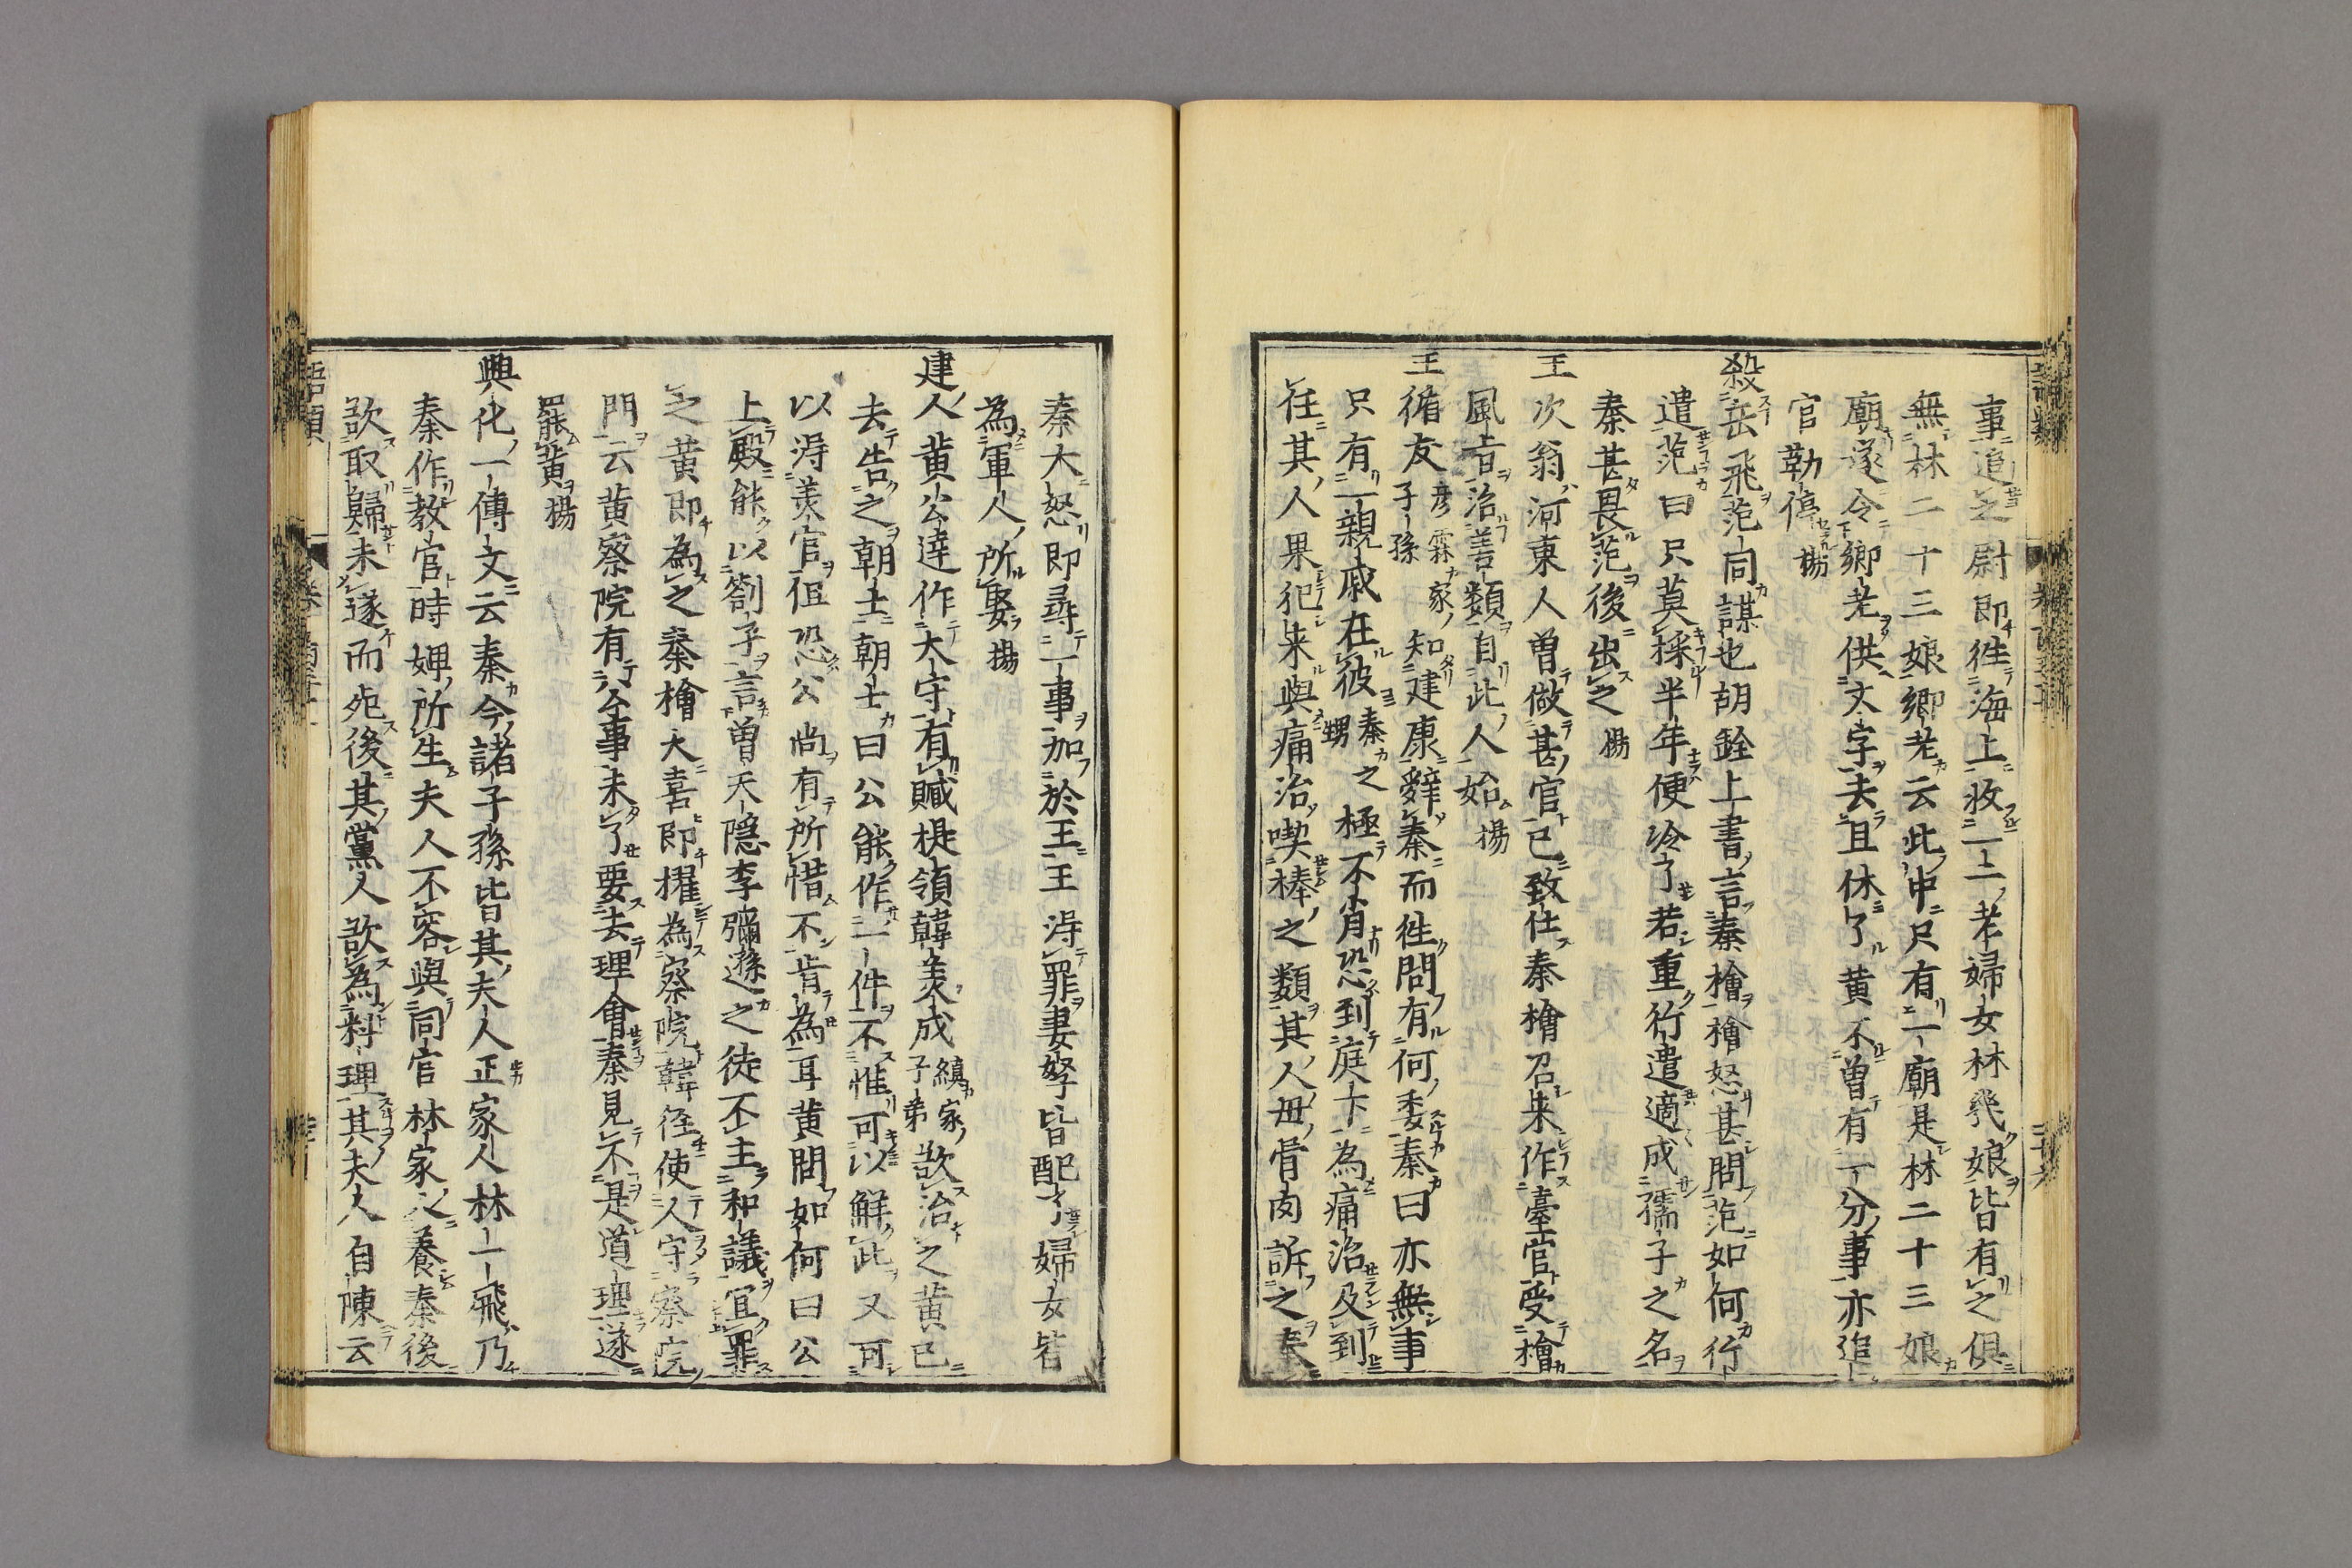 事追之尉即徃海上收一二老婦女林幾娘皆有之俱
無林二十三娘鄉老云此中只有一廟是林二十三娘
廟遂令鄉老供文字去且休了黄不曾有一分事亦追
官勒停揚
殺岳飛范同謀也胡銓上書言秦檜檜怒甚問范如何行
遣范曰只莫採半年便冷了若重行遣適成孺子之名
秦甚畏范後出之揚
王次翁河東人曾做甚官已致仕秦檜召来作臺官受檜
風㫖治善類自此人始揚
王循友彦霖家子孫知建康辭秦而徃問有何委秦曰亦無事
只有一親戚在彼秦之甥之極不肖恐到庭下為痛治及到
任其人果犯来與痛治喫棒之類其人毋骨肉訴之秦
秦大怒即尋一事加於王王得罪妻孥皆配了婦女皆
為軍人所娶揚
建人黄公達作大守有贓提領韓美成縝家子弟欲治之黄已
去告之朝士朝士曰公能作一件不惟可以解此又可
以得美官但恐公尚有所惜不肯為耳黄問如何曰公
上殿能以劄子言曾天隱李彌遜之徒不主和議宜罪
之黄即為之秦檜大喜即擢為察院韓徑使人守察院
門云黄察院有公事未了要去理會秦見不是道理遂
罷黄揚
興化一傳文云秦今諸子孫皆其夫人正家人林一飛乃
秦作教官時婢所生夫人不容與同官林家人養秦後
欲取歸未遂而死後其黨人欲為料理其夫人自陳云
語類